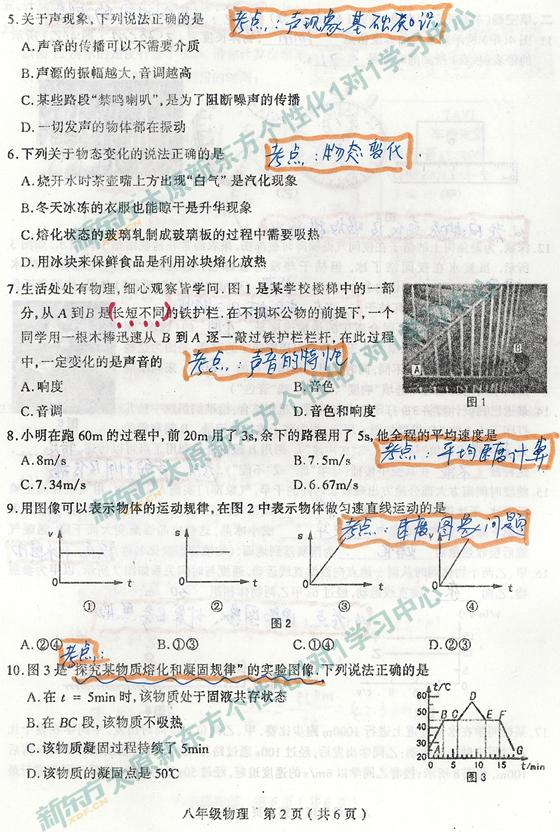 5.关于声现象,下列说法正确的是
考点:声现象基础知识.
A.声音的传播可以不需要介质
B.声源的振幅越大,音调越高
C.某些路段“禁鸣喇叭”,是为了阻断噪声的传播
D.一切发声的物体都在振动
6.下列关于物态变化的说法正确的是
考点:物态变化.
A.烧开水时茶壶嘴上方出现“白气”是汽化现象
B.冬天冰冻的衣服也能晾干是升华现象
C.熔化状态的玻璃轧制成玻璃板的过程中需要吸热
D.用冰块来保鲜食品是利用冰块熔化放热
7.生活处处有物理,细心观察皆学问.图1是某学校楼梯中的一部
分,从A到B是(长短不同)的铁护栏.在不损坏公物的前提下,一个
同学用一根木棒迅速从B到A逐一敲过铁护栏栏杆,在此过程
中,一定变化的是声音的
考点:声音的特性
A.响度
B.音色
C.音调
D.音色和响度
A
B
图1
8.小明在跑60m的过程中,前20m用了3s,余下的路程用了5s,他全程的平均速度是
考点:平均速度计算
A.8m/s
B.7.5m/s
C.7.34m/s
D.6.67m/s
9.用图像可以表示物体的运动规律,在图2中表示物体做匀速直线运动的是
考点:速度图象问题
v
t
s
t
v
t
s
t
①
②
③
④
图2
A.②④
B.①③
C.①④
D.②③
考点:
10.图3是“探究某物质熔化和凝固规律”的实验图像.下列说法正确的是
A.在t=5min时,该物质处于固液共存状态
B.在BC段,该物质不吸热
C.该物质凝固过程持续了5min
D.该物质的凝固点是50℃
t/℃
60
50
40
30
20
A
B
C
D
E
F
G
0
5
10
15
t/min
图3
新东方太原新东方个性化1对1学习中心
新东方
XDF.CN
八年级物理 第2页(共6页)